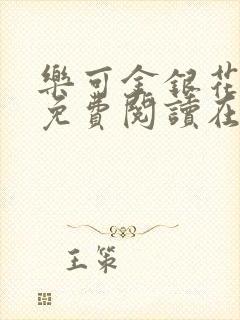 樂可金銀花
免費閱讀在
王策